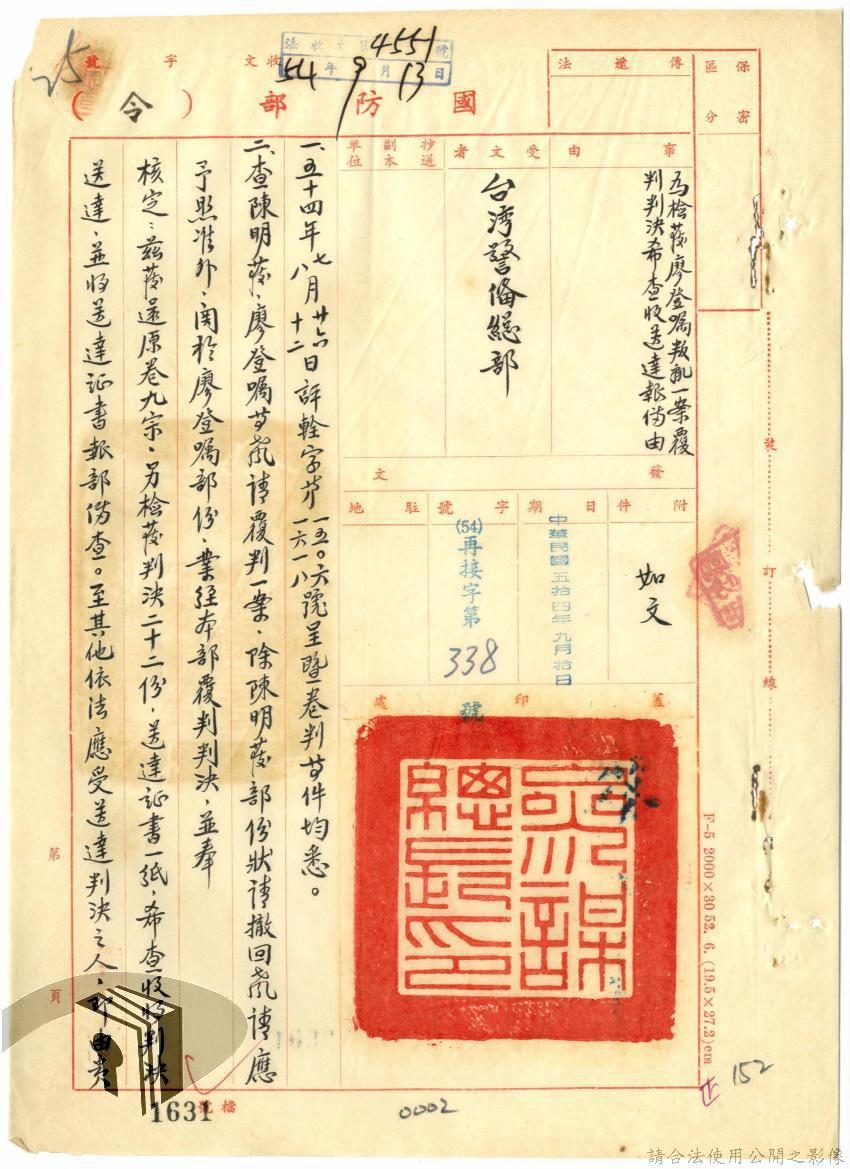 保密
區分
傳遞法
國防部（令）
收文 字 號
法收文第4551號
54年9月13日
25
事由
為檢發廖登囑叛亂一案覆
判判決希查收送達報備由
受文者
台湾警備總部
抄送
副本
單位
發文
附件
如文
日期
中華民國五拾四年九月拾日
字號
(54)再接字第338號
駐地
蓋印處
參謀總長印
一、五十四年七月廿六日
八月十二
評輇字第一五〇六號呈暨卷判等件均悉。
一六一八
二、查陳明發、廖登囑等聲請覆判一案，除陳明發部份狀請撤回聲請應
予照准外，関於廖登囑部份，業經本部覆判判決，並奉
核定；茲發還原卷九宗，另檢發判決二十二份，送達証書一紙，希查收將判決
送達，並收送達証書報部備查。至其他依法應受送達判決之人，即由貴
裝
訂
線
第
頁
檔號
1631
0002
152
F-5 2000×30 52. 6. (19.5×27.2)cm
請合法使用公開之影像